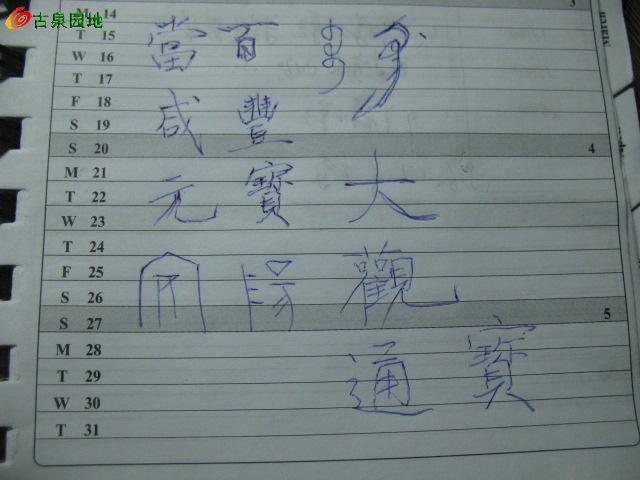 古泉园地
March
3
M 14
T 15
W 16
T 17
F 18
S 19
S 20
4
M 21
T 22
W 23
T 24
F 25
S 26
S 27
5
M 28
T 29
W 30
T 31
當百
咸豐
元寶大
觀
通寶